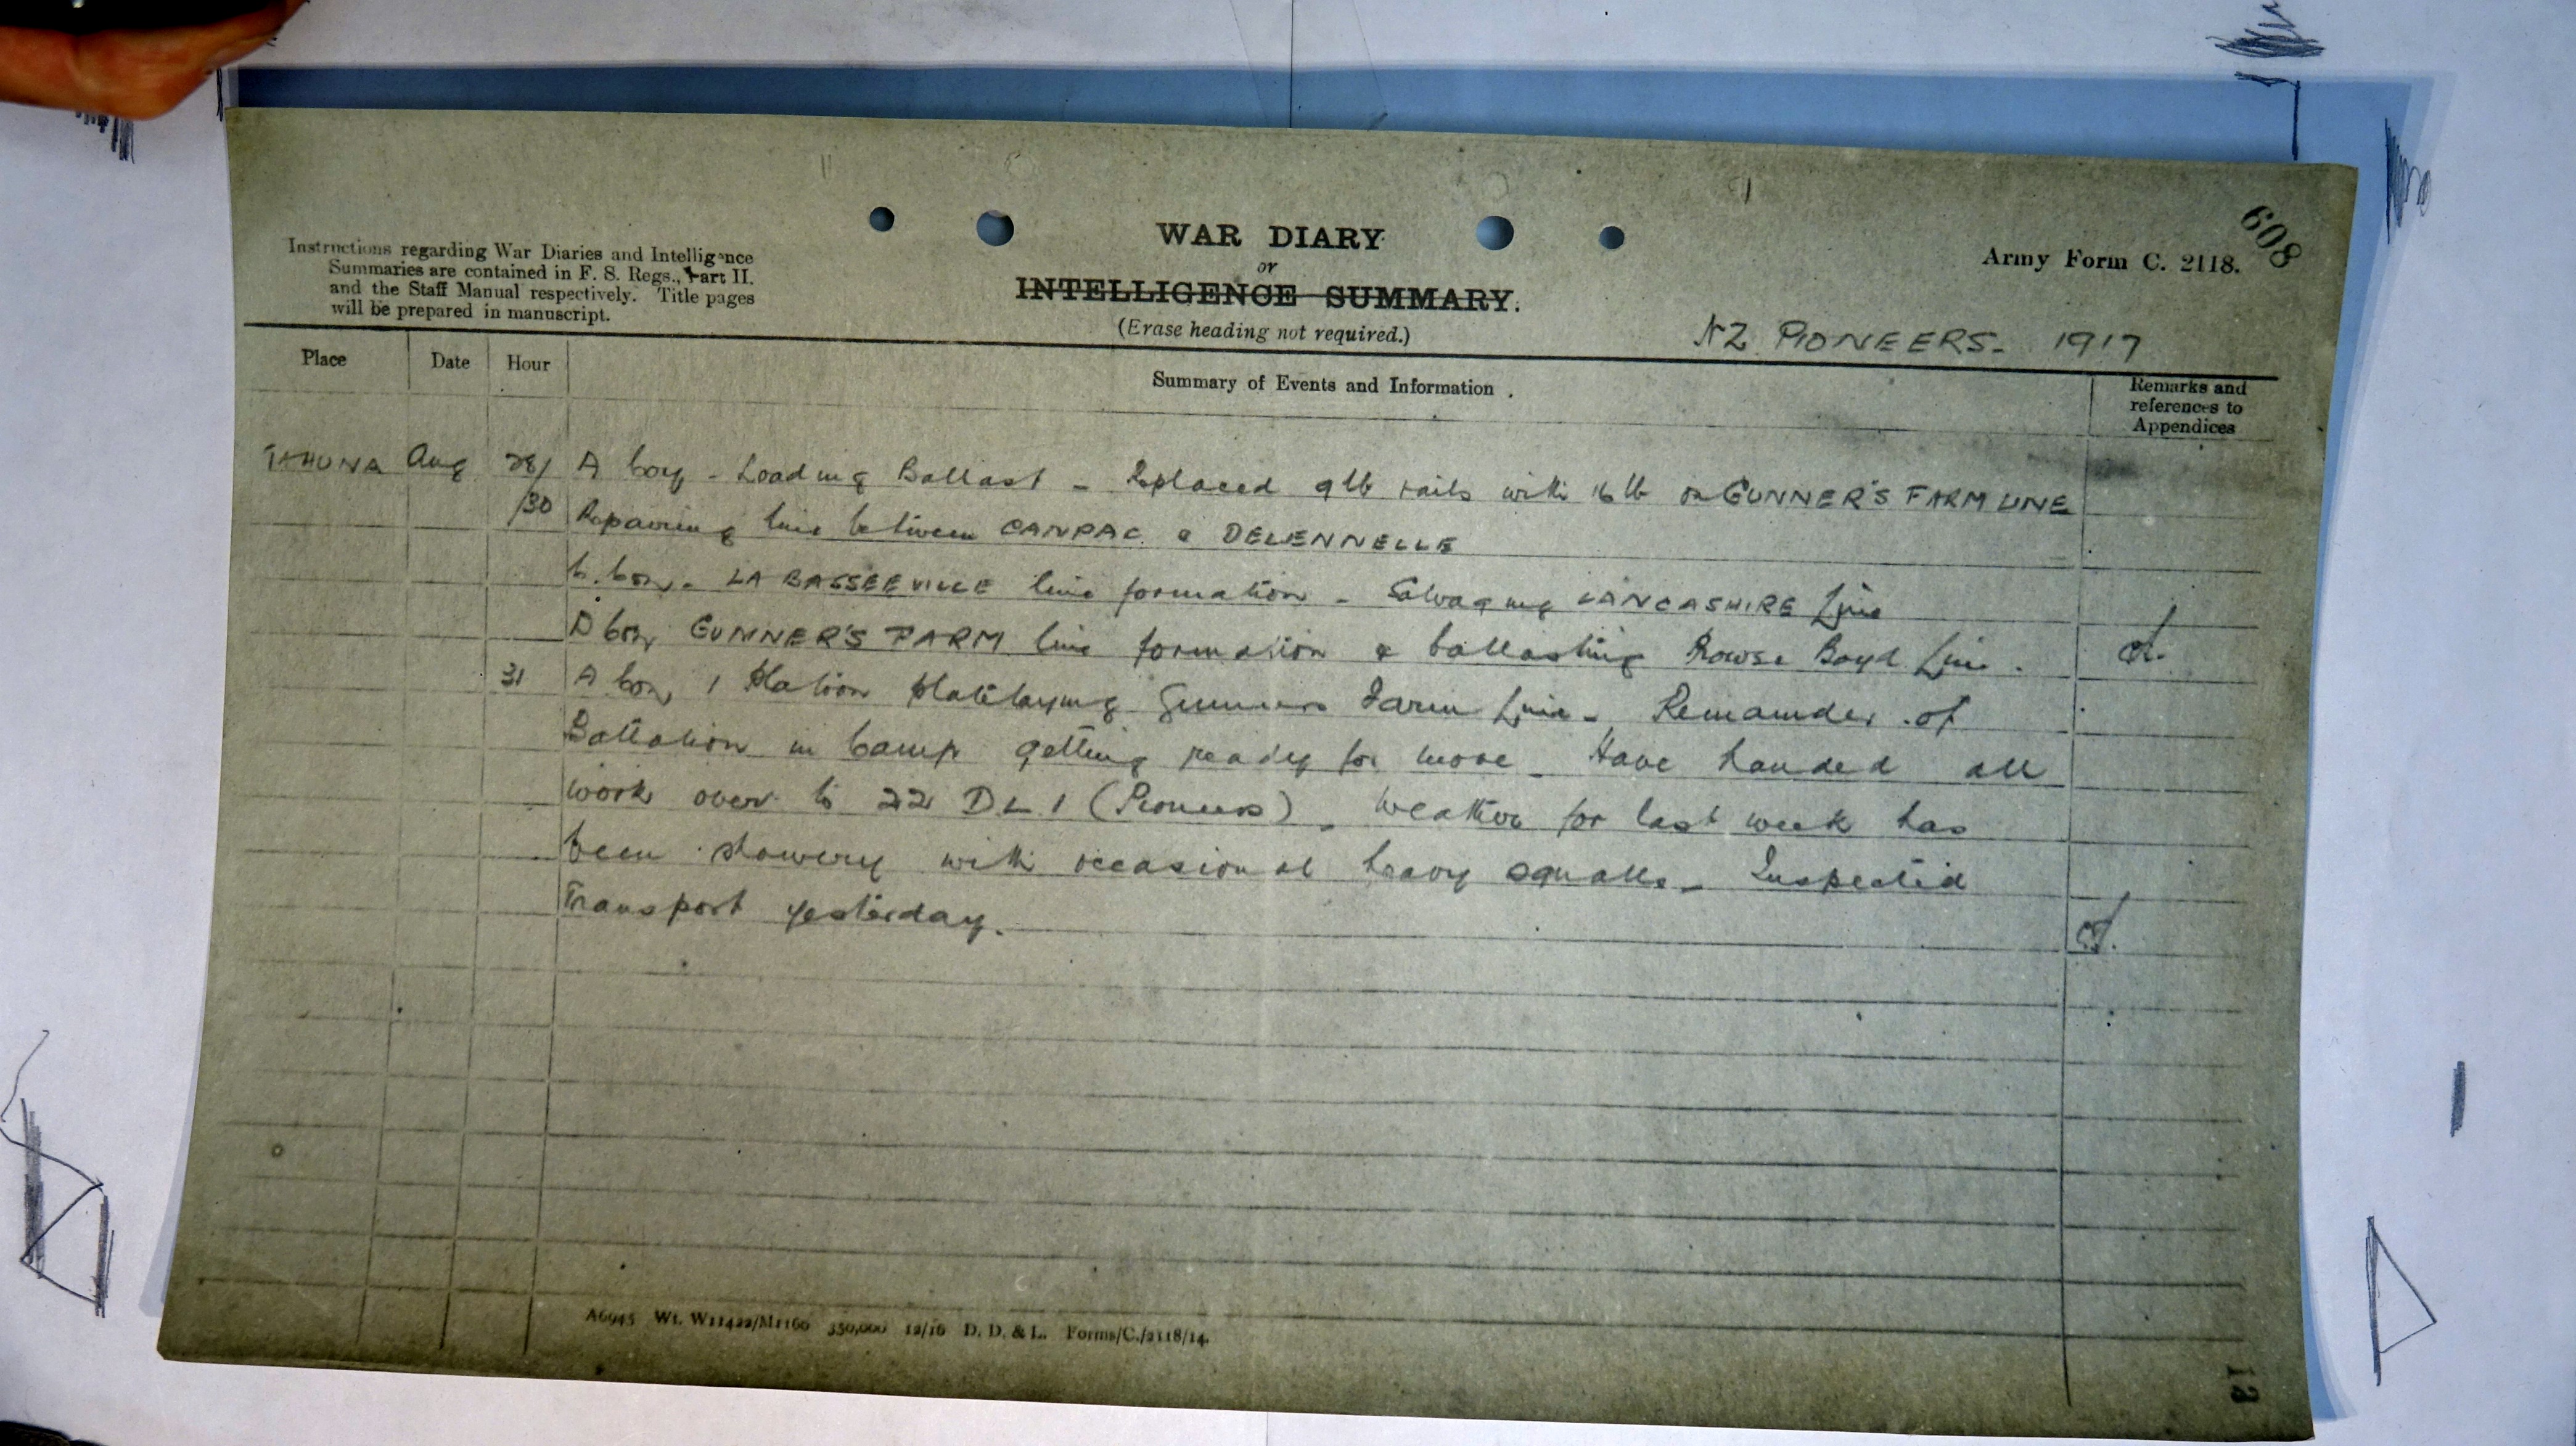 608
WAR DIARY
or
INTELLIGENCE SUMMARY.
(Erase heading not required.)
Instructions regarding War Diaries and Intelligence
Summaries are contained in F. S. Regs., Part II.
and the Staff Manual respectively. Title pages
will be prepared in manuscript.
Army Form C. 2118.
NZ PIONEERS. 1917
Place Date Hour Summary of Events and Information .
Remarks and
references to
Appendices
TAHUNA Aug 28/ A Coy - Loading Ballast - Replaced 9lb rails with 16 lb on GUNNER'S FARM LINE
/30 Repairing line between CANPAC & DELENNELLE
C. Coy. LA BASSEEVILLE line formation - Salvaging LANCASHIRE Line
D Coy GUNNER'S FARM line formation & ballasting Rowse Boyd Line.
31 A Coy 1 Platoon platelaying Gunners Farm Line - Remainder of
Battalion in Camp getting ready for move - Have handed all
work over to 22 D.L.I (Pioneers) - Weather for last week has
been showery with occasional heavy squalls - Inspected
Transport yesterday.
A6945 Wt. W11422/M1160 350,000 12/16 D. D. & L. Forms/C./2118/14.
13